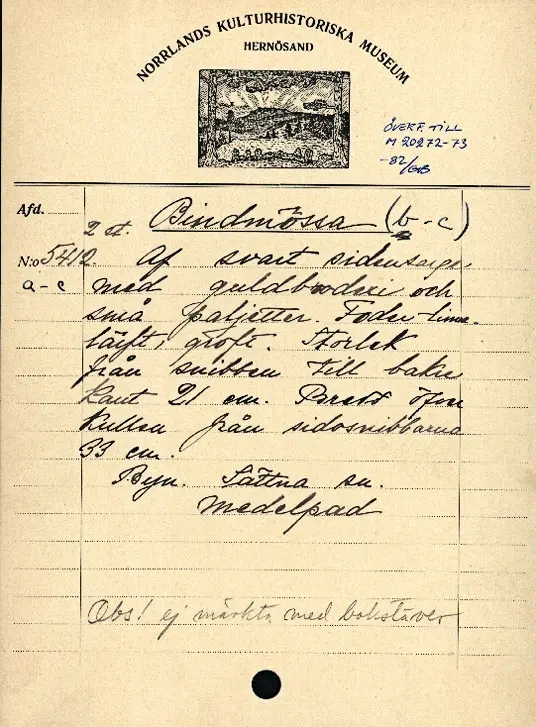 NORRLANDS KULTURHISTORISKA MUSEUM
HERNÖSAND
ÖVERF. TILL
M 20272-73
-82/GB
Afd.
2 st. Bindmössa (b-c)
N:o 5412. Af svart sidensarge,
a-c med guldbroderi och
små paljetter. Foder linne-
läift, groft. Storlek
från snibben till bakre
kant 21 cm. Bredd öfver
kullen från sidosnibbarna
33 cm.
Byn. Sättna sn.
Medelpad
Obs! ej märkta med bokstäver